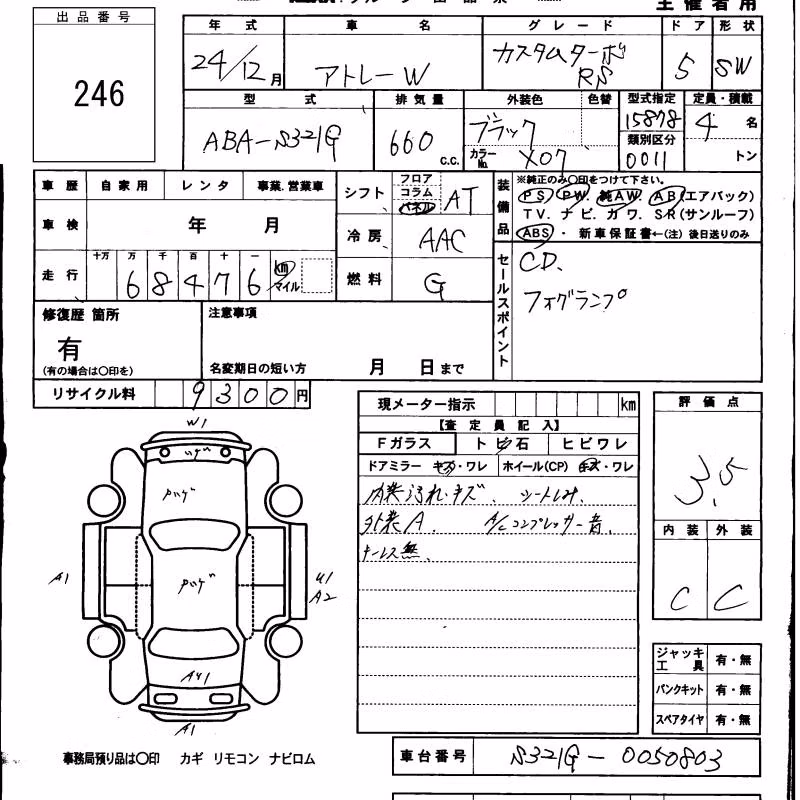 主催者用
出品番号
246
年式 車名 グレード ドア 形状
24/12月 アトレーW カスタムターボRS 5 SW
型式 排気量 外装色 色替 型式指定 定員・積載
ABA-S321G 660 c.c. ブラック 15878 4名
カラーNo. X07 類別区分 0011 トン
車歴 自家用 レンタ 事業.営業車
車検 年 月
走行 十万 万 千 百 十 一
68476 km マイル
シフト フロア コラム パネル AT
冷房 AAC
燃料 G
装備品
※純正のみ〇印をつけて下さい。
PS PW. 純AW. AB(エアバック)
TV. ナビ. カワ. SR(サンルーフ)
ABS・新車保証書←(注)後日送りのみ
セールスポイント
CD.
フォグランプ
修復歴 箇所
有
(有の場合は〇印を)
注意事項
名変期日の短い方 月 日まで
リサイクル料 9300円
現メーター指示 km
【査定員記入】
Fガラス トビ石 ヒビワレ
ドアミラー キズ・ワレ ホイール(CP) キズ・ワレ
内装汚れ・キズ. シートしみ.
外装A. A/Cコンプレッサー音.
キーレス無.
評価点
3.5
内装 外装
C C
ジャッキ工具 有・無
パンクキット 有・無
スペアタイヤ 有・無
W1
A1
A2
A1
事務局預り品は〇印 カギ リモコン ナビロム
車台番号 S321G-0050803